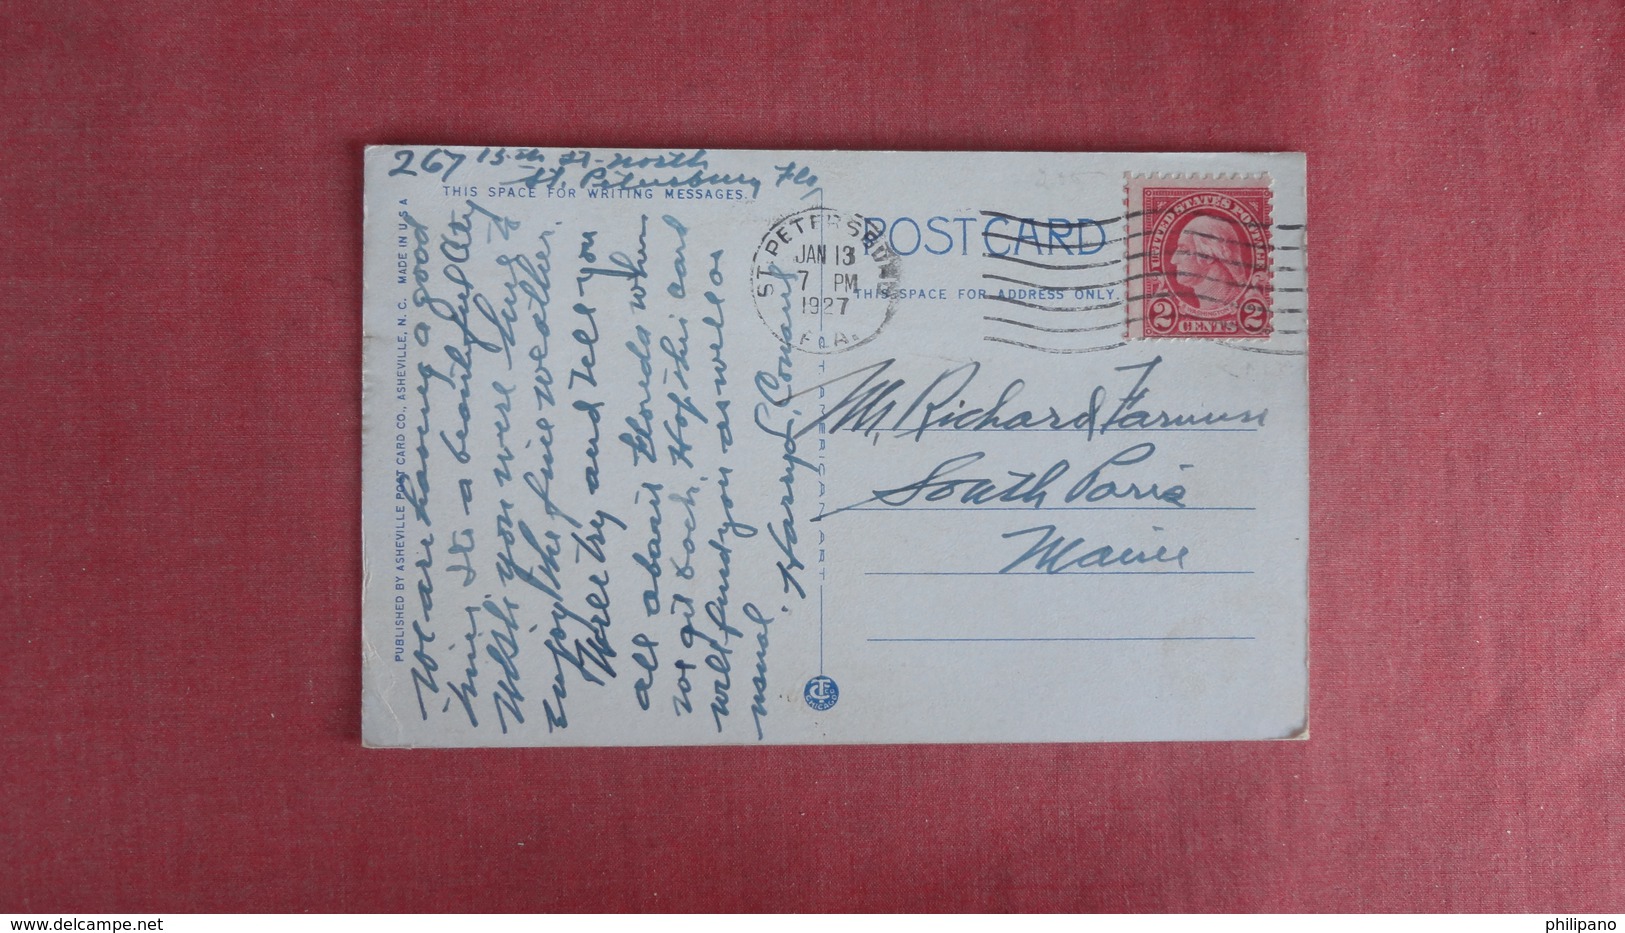 267 13-th St-North
St. Petersburg Fla
THIS SPACE FOR WRITING MESSAGES.
We are having a good
time. Its a beautiful City
Wish you were here to
enjoy the fine weather.
Will try and tell you
all about Florida when
we get back. Hop this card
will find you as well as
usual.
Harry
PUBLISHED BY ASHEVILLE POST CARD CO., ASHEVILLE, N. C. MADE IN U S A
POST CARD
THIS SPACE FOR ADDRESS ONLY.
ST. PETERSBURG
JAN 13
7 PM
1927
FLA.
UNITED STATES POSTAGE
2 CENTS 2
Mr, Richard
South Paris
Maine
AMERICAN ART
CT
CHICAGO
philipano